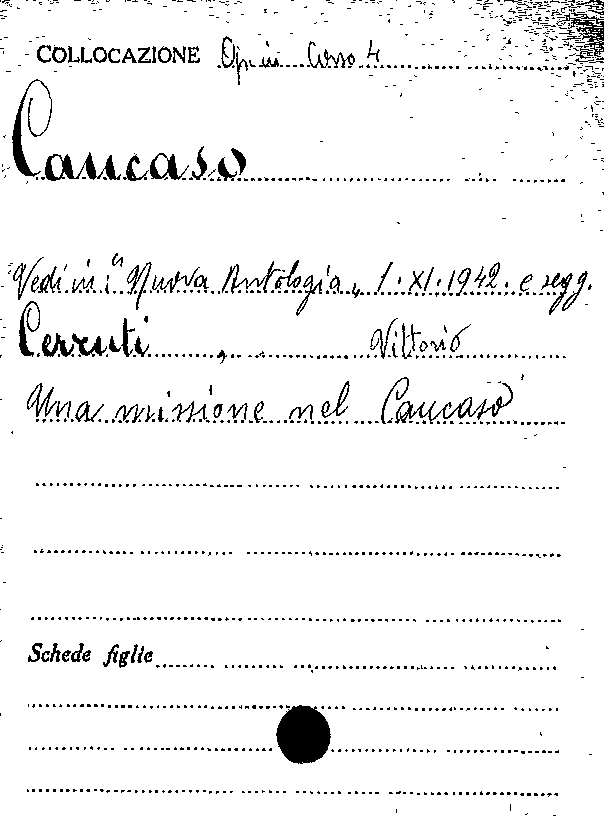 COLLOCAZIONE Op. in Corso 4
Caucaso
Vedi in : "Nuova Antologia„ 1.XI.1942. e segg.
Cerruti , Vittorio
Una missione nel Caucaso
Schede figlie